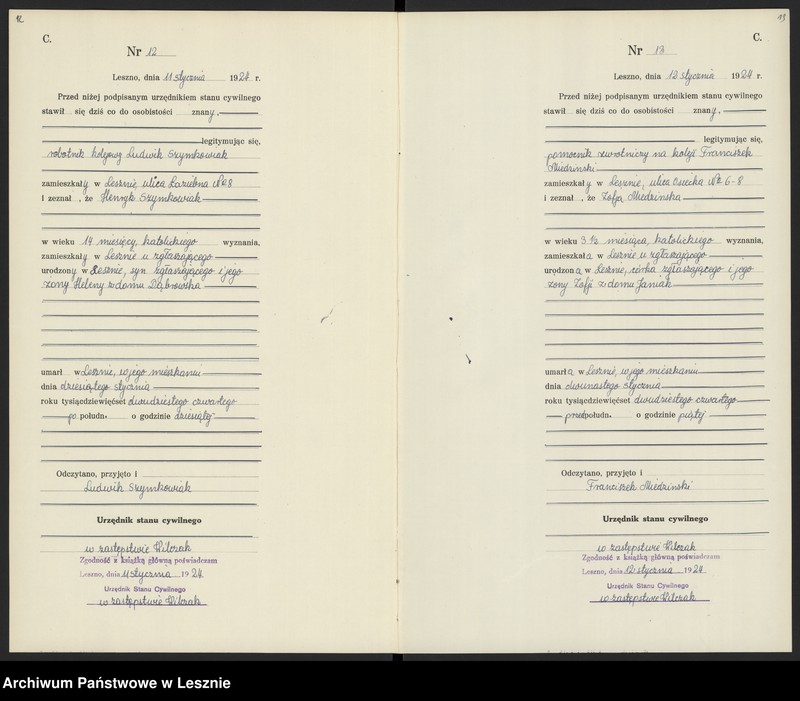 12
C.
Nr 12
Leszno, dnia 11 stycznia 1924 r.
Przed niżej podpisanym urzędnikiem stanu cywilnego
stawił się dziś co do osobistości znany,
legitymując się,
robotnik kolejowy Ludwik Szymkowiak
zamieszkały w Lesznie, ulica Łaziebna № 8
i zeznał, że Henryk Szymkowiak
w wieku 14 miesięcy, katolickiego wyznania,
zamieszkały w Lesznie u zgłaszającego
urodzony w Lesznie, syn zgłaszającego i jego
żony Heleny z domu Dąbrowska
umarł w Lesznie, w jego mieszkaniu
dnia dziesiątego stycznia
roku tysiącdziewięćset dwudziestego czwartego
po połudn. o godzinie dziesiątej
Odczytano, przyjęto i
Ludwik Szymkowiak
Urzędnik stanu cywilnego
w zastępstwie Witczak
Zgodność z książką główną poświadczam
Leszno, dnia 11 stycznia 1924
Urzędnik Stanu Cywilnego
w zastępstwie Witczak
13
C.
Nr 13
Leszno, dnia 12 stycznia 1924 r.
Przed niżej podpisanym urzędnikiem stanu cywilnego
stawił się dziś co do osobistości znany,
legitymując się,
pomocnik zwrotniczy na kolei Franciszek
Miedzinski
zamieszkały w Lesznie, ulica Osiecka № 6-8
i zeznał, że Zofja Miedzinska
w wieku 3 ½ miesiąca, katolickiego wyznania,
zamieszkała w Lesznie u zgłaszającego
urodzona w Lesznie, córka zgłaszającego i jego
żony Zofji z domu Janiak
umarła w Lesznie, w jego mieszkaniu
dnia dwunastego stycznia
roku tysiącdziewięćset dwudziestego czwartego
przedpołudn. o godzinie piątej
Odczytano, przyjęto i
Franciszek Miedzinski
Urzędnik stanu cywilnego
w zastępstwie Witczak
Zgodność z książką główną poświadczam
Leszno, dnia 12 stycznia 1924
Urzędnik Stanu Cywilnego
w zastępstwie Witczak
Archiwum Państwowe w Lesznie